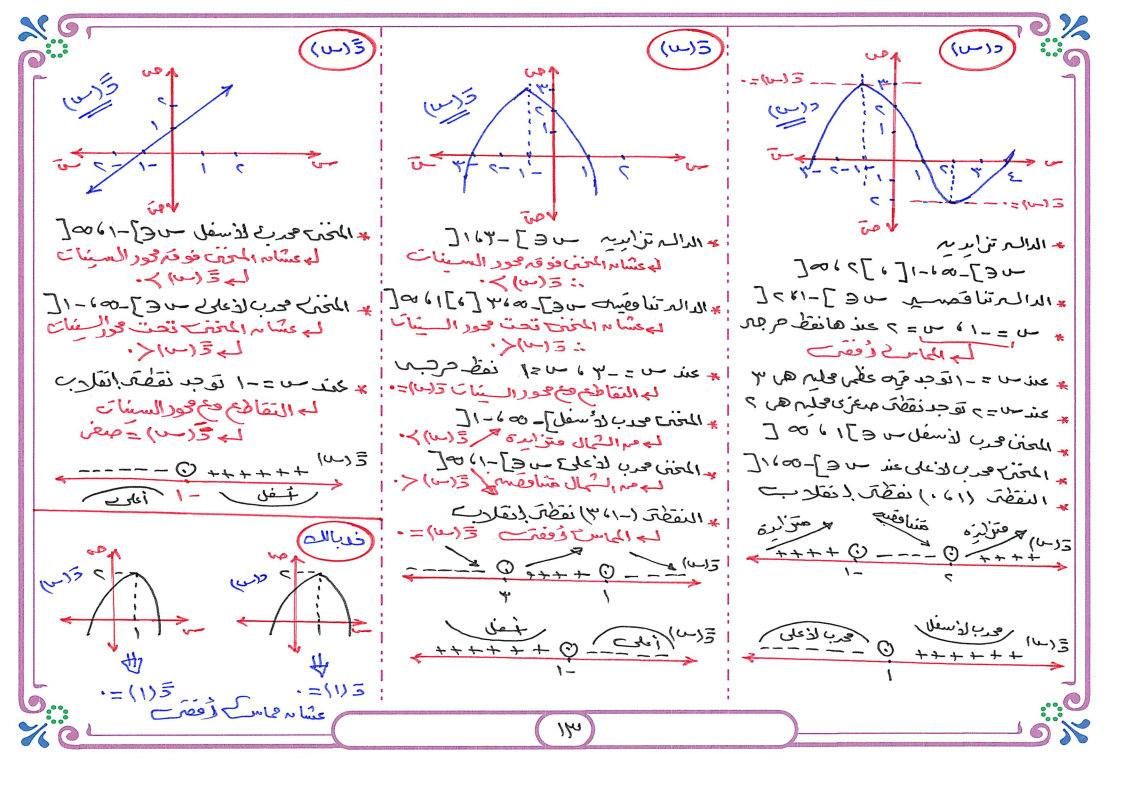 د(س)
ص
د(س)
دَ(س) = ٠
٣
٢
١
٣- ٢- ١- ١ ٢ ٣ ٤
س
سَ
١-
٢-
دَ(س) = ٠
صَ
* الدالة تزايدية
س ∈ ]-∞ ، -١[ و ]٢ ، ∞[
* الدالة تناقصية س ∈ ]-١ ، ٢[
* س = -١ ، س = ٢ عندها نقط حرجة
↳ المماس أفقى
* عند س = -١ توجد قيمة عظمى محلية هى ٣
* عند س = ٢ توجد نقطة صغرى محلية هى ٢
* المنحنى محدب لأسفل س ∈ ]١ ، ∞[
* المنحنى محدب لأعلى عند س ∈ ]-∞ ، ١[
* النقطة (١ ، ٠) نقطة إنقلاب
متزايدة متناقصة متزايدة
دَ(س)
++++ ---- ++++
١- ٢
دً(س)
محدب لأعلى محدب لأسفل
------ ++++++
١
دَ(س)
ص
دَ(س)
٣
٢
١
٣- ٢- ١- ١ ٢
س
سَ
صَ
* الدالة تزايدية س ∈ ]-٣ ، ١[
↳ عشان المنحنى فوق محور السينات
∴ دَ(س) > ٠
* الدالة تناقصية س ∈ ]-∞ ، ٣[ و ]١ ، ∞[
↳ عشان المنحنى تحت محور السينات
∴ دَ(س) < ٠
* عند س = -٣ ، س = ١ نقط حرجة
↳ التقاطع مع محور السينات دَ(س) = ٠
* المنحنى محدب لأسفل ]-∞ ، -١[
↳ من الشمال متزايدة دً(س) > ٠
* المنحنى محدب لأعلى س ∈ ]-١ ، ∞[
↳ من الشمال متناقصة دً(س) < ٠
* النقطة (-١ ، ٣) نقطة إنقلاب
↳ المماس أفقى دً(س) = ٠
دَ(س)
---- ++++ ----
٣ ١
دً(س)
أسفل أعلى
++++++ ----
١-
دً(س)
ص
دً(س)
٢
١
٢- ١- ١ ٢
س
سَ
صَ
* المنحنى محدب لأسفل س ∈ ]-١ ، ∞[
↳ عشان المنحنى فوق محور السينات
↳ دً(س) > ٠
* المنحنى محدب لأعلى س ∈ ]-∞ ، -١[
↳ عشان المنحنى تحت محور السينات
↳ دً(س) < ٠
* عند س = -١ توجد نقطة إنقلاب
↳ التقاطع مع محور السينات
↳ دً(س) = صفر
دً(س)
------ ++++++
أعلى ١- أسفل
خد بالك
ص
د(س)
٢
١
س
دَ(١) = ٠
ص
دَ(س)
٢
١
س
دً(١) = ٠
عشان مماس أفقى
١٣